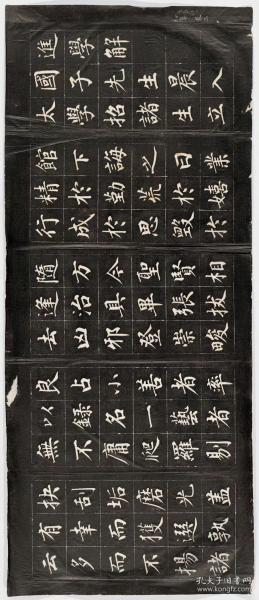 進學解
國子先生晨入
太學招諸生立
館下誨之曰業
精於勤荒於嬉
行成於思毀於
隨方今聖賢相
逢治具畢張拔
去凶邪登崇畯
良占小善者率
以錄名一藝者
無不庸爬羅剔
抉刮垢磨光蓋
有幸而獲選孰
云多而不揚諸
孔夫子旧书网